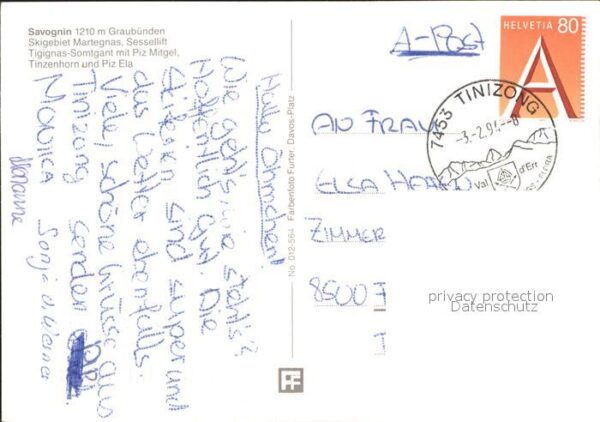 Savognin 1210 m Graubünden
Skigebiet Martegnas, Sessellift
Tigignas-Somtgant mit Piz Mitgel,
Tinzenhorn und Piz Ela
A-Post
HELVETIA 80
A
7453 TINIZONG
-3.-2.91.--8
Val d'Err
AN FRAU
ELSA
ZIMMER
8500
privacy protection
Datenschutz
No. 012-564 Farbenfoto Furter, Davos-Platz
Hallo Öhmchen!
Wie geht's, wie steht's?
Hoffentlich gut. Die
sind super und
das Wetter ebenfalls.
Viele, schöne Grüsse aus
Tinizong senden
Monica Sonja u. Werner